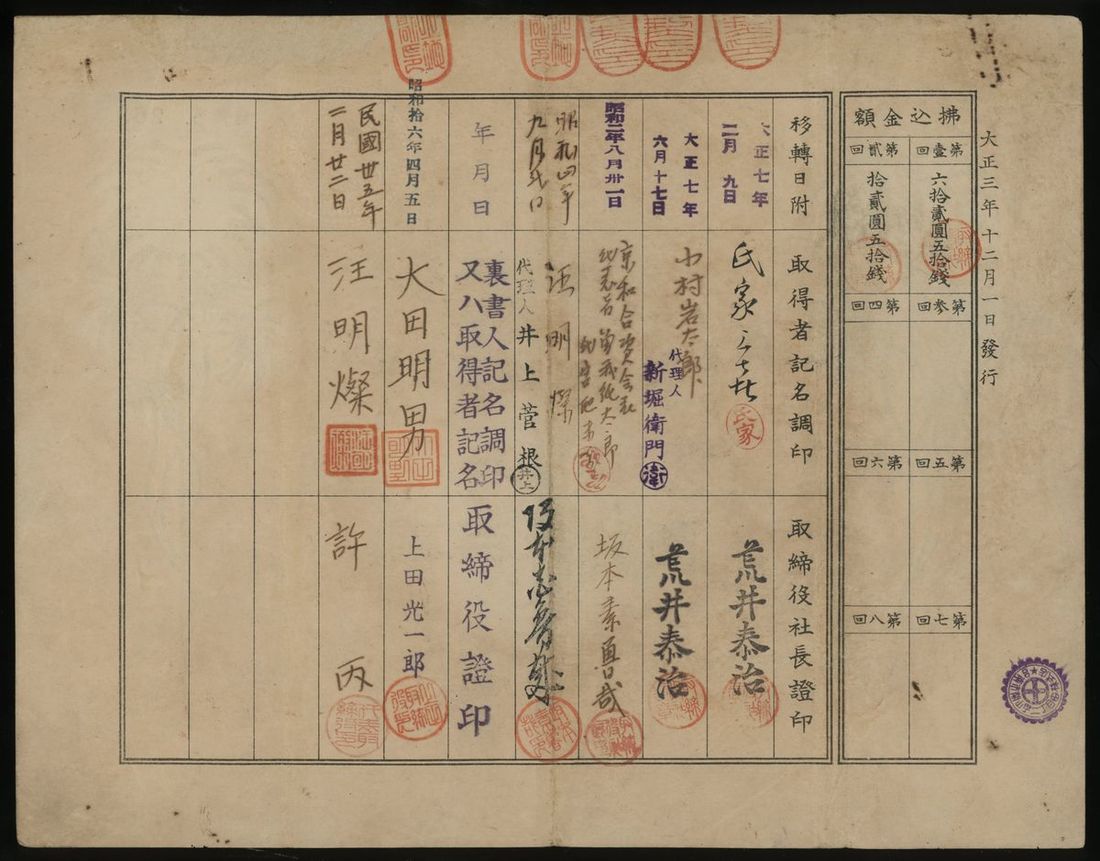 大正三年十二月一日發行
拂込金額
第壹回
六拾貳圓五拾錢
第貳回
拾貳圓五拾錢
第參回
第四回
第五回
第六回
第七回
第八回
移轉日附
取得者記名調印
取締役社長證印
大正七年
二月九日
氏家
荒井泰治
大正七年
六月十七日
小村岩太郎
代理人
新堀衛門
衛
荒井泰治
昭和二年八月卅一日
京和合資会社
坂本素魯哉
昭和四年
九月弍日
汪明燦
代理人
井上菅根
井上
年月日
裏書人記名調印
又ハ取得者記名
取締役證印
昭和拾六年四月五日
大田明男
上田光一郎
民國卅五年
二月廿二日
汪明燦
許丙